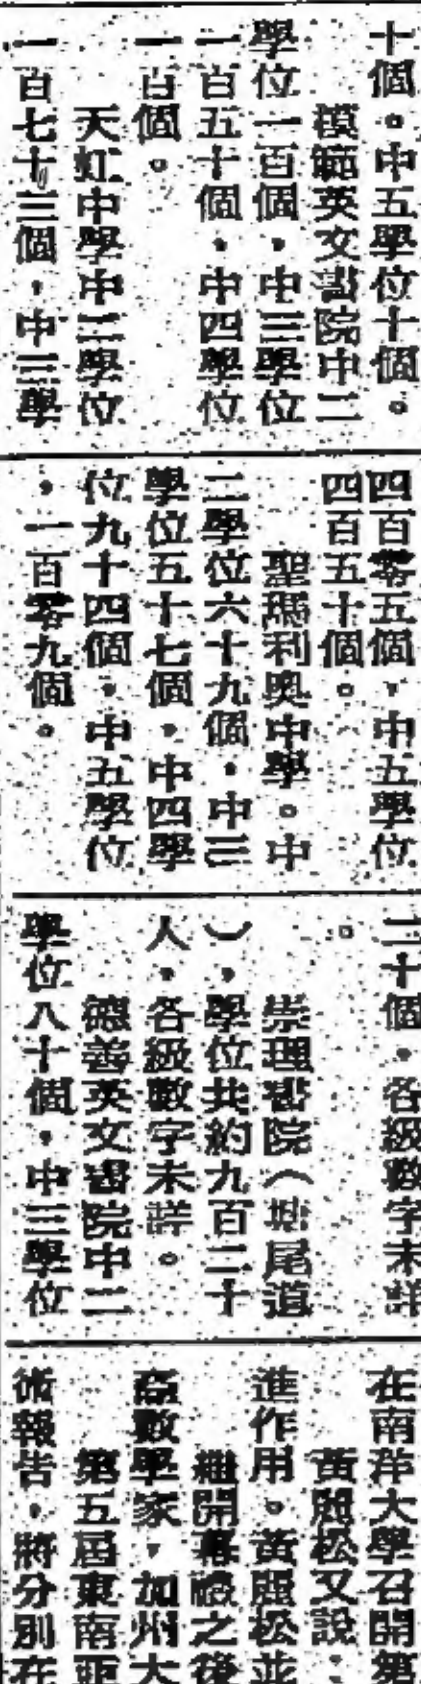 十個。中五學位十個。
模範英文書院中二
學位一百個，中三學位
一百五十個，中四學位
一百個。
天虹中學中二學位
一百七十三個，中三學
四百零五個，中五學位
四百五十個。
聖瑪利奧中學。中
二學位六十九個，中三
學位五十七個，中四學
位九十四個，中五學位
，一百零九個。
二十個，各級數字未詳
。
崇理書院（塘尾道
），學位共約九百二十
人，各級數字未詳。
德善英文書院中二
學位八十個，中三學位
在南洋大學召開第
黃麗松又說：
進作用。黃麗松並
繼開幕禮之後
數學家，加州大
第五屆東南亞
術報告，將分別在